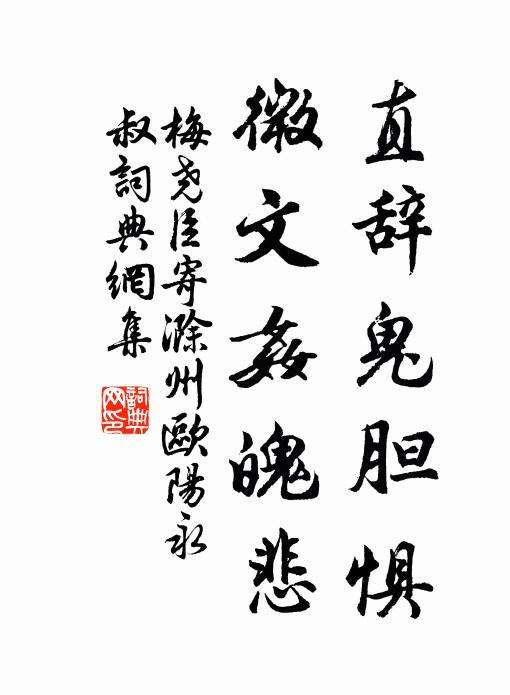 直辞鬼胆惧
微文奸魄悲
梅尧臣寄滁州歐陽永
叔詞典網集
詞典
网印